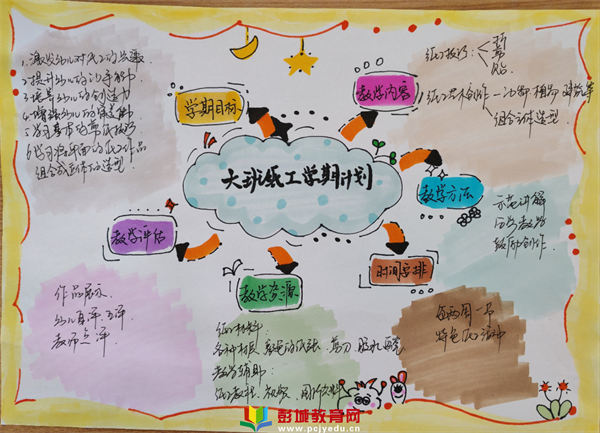 大班纸工学期计划
学期目标
1.激发幼儿对纸工的兴趣
2.提升幼儿的动手能力
3.培养幼儿的创造力
4.增强幼儿的审美能力
5.学习基本的剪纸技巧
6.学习将平面的纸工作品
组合成立体的造型
教学内容
纸工技巧：折
剪
贴
纸工艺术创作－动物 植物 建筑等
组合立体造型
教学方法
示范讲解
分步教学
鼓励创作
时间安排
每两周一节
特色活动中
教学资源
纸工材料：
各种材质、颜色的纸张、剪刀、胶水
教学辅助：
纸工教程、视频、图片资料
教学评估
作品展示
幼儿自评、互评
教师点评
彭城教育网
www.pcjyedu.cn